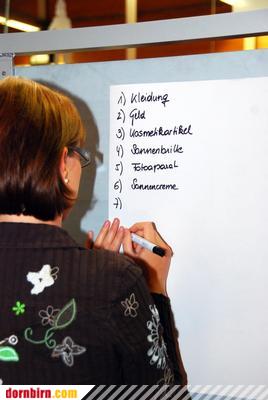 1) Kleidung
2) Geld
3) Kosmetikartikel
4) Sonnenbrille
5) Fotoaparat
6) Sonnencreme
7)
dornbirn.com